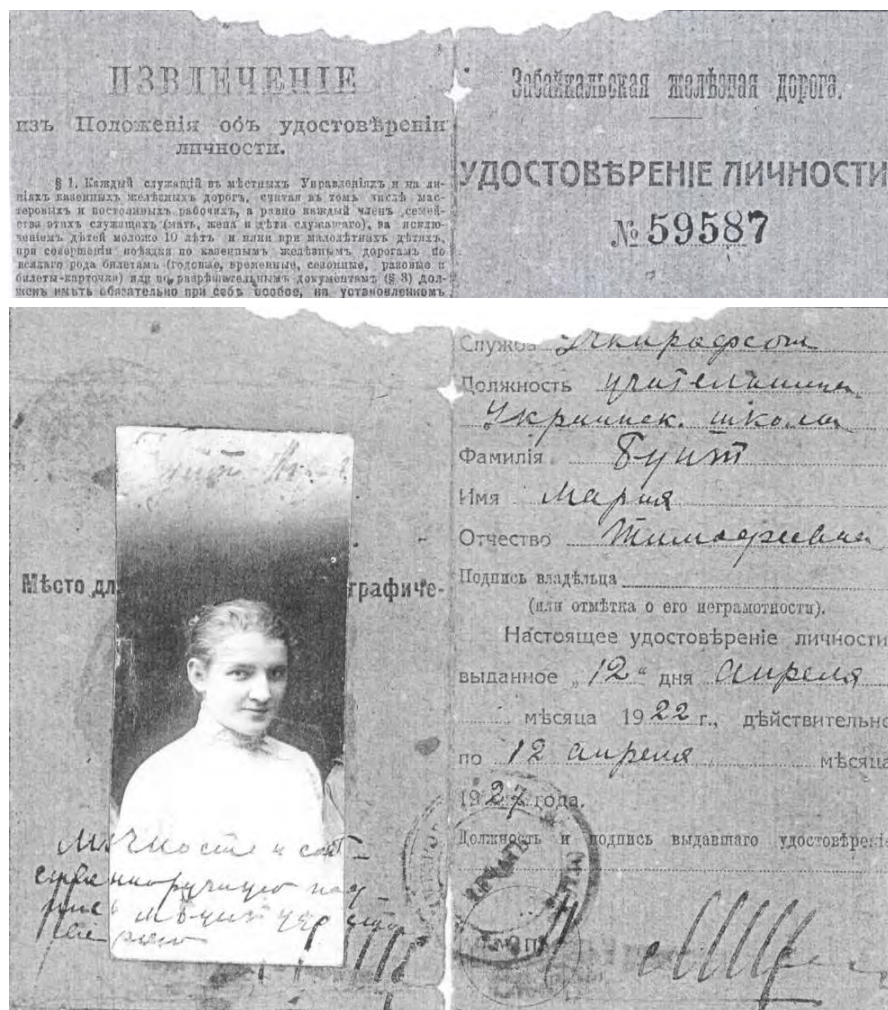 ИЗВЛЕЧЕНІЕ
изъ Положенія объ удостовѣреніи
личности.
§ 1. Каждый служащій въ мѣстныхъ Управленіяхъ и на ли-
ніяхъ казенныхъ желѣзныхъ дорогъ, считая въ томъ числѣ мас-
теровыхъ и постоянныхъ рабочихъ, а равно каждый членъ семей-
ства этихъ служащихъ (мать, жена и дѣти служащаго), за исклю-
ченіемъ дѣтей моложе 10 лѣтъ и няни при малолѣтнихъ дѣтяхъ,
при совершеніи поѣздки по казеннымъ желѣзнымъ дорогамъ по
всякаго рода билетамъ (годовые, временные, сезонные, разовые и
билеты-карточки) или по разрѣшительнымъ документамъ (§ 3) дол-
женъ имѣть обязательно при себѣ особое, на установленномъ
Забайкальская желѣзная дорога.
УДОСТОВѢРЕНІЕ ЛИЧНОСТИ
№ 59587
Мѣсто для графиче-
Личность и собст-
венноручную под
пись
Служба
Должность учительница
Украинск. школы
Фамилія Бунт
Имя Мария
Отчество Тимофеевна
Подпись владѣльца
(или отмѣтка о его неграмотности).
Настоящее удостовѣреніе личности
выданное „12“ дня апреля
мѣсяца 1922 г., дѣйствительно
по 12 апреля мѣсяца
1927 года.
Должность и подпись выдавшаго удостовѣреніе